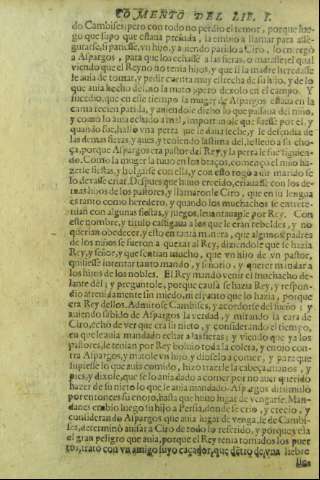 COMENTO DEL LIB. I.
do Cambises; pero con todo no perdio el temor, porque lue-
go que supo que estaua preñada, la embio a llamar para asse-
gurarse, si pariesse, vn hijo, y auiendo parido a Ciro, lo entregò
a Aspargos, para que los echasse a las fieras, o matasse; el qual
viendo que el Reyno no tenia hijos, y que si la madre heredasse
le auia de tomar, y pedir cuenta muy estrecha de su hijo, y de lo
que auia hecho del, no la mato pero dexolo en el campo. Y
sucedio, que en este tiempo la muger de Aspargos estaua en la
cama recien parida, y auiendole dicho lo que passaua del niño,
y como lo auia echado a mal, importunole que fuesse por el, y
quando fue, hallo vna perra que le daua leche, y le defendia de
las demas fieras, y aues, y teniendo lastima del, lo lleuo a su cho-
ça, porque Aspargos era pastor del Rey, y la perra le fue siguien-
do. Como la muger la tuuo en los braços, començo el niño ha-
zerle fiestas, y holgarse con ella, y con esto rogo a su marido se
lo dexasse criar. Despues que huuo crecido, criauasse con los de-
mas hijos de los pastores, y llamaronle Ciro, que en su lengua
es tanto como heredero, y quando los muchachos se entrete-
nian con algunas fiestas, y juegos, leuantauasse por Rey. Con
este nombre, y titulo castigaua a los que le eran rebeldes, y no
querian obedecer, y esto en tanta manera, que algunos padres
de los niños se fueron a quexar al Rey, diziendole que se hazia
Rey, y señor, y que sentian mucho, que vn hijo de vn pastor,
quisiesse intentar tanto mando, y señorio, y querer mandar a
los hijos de los nobles. El Rey mando venir el muchacho de-
lante del; y preguntole, porque causa se hazia Rey, y respon-
dio atreuidamente sin miedo, ni espanto que lo hazia, porque
era Rey dellos. Admirose Cambises, y acordose del sueño; y
auiendo sabido de Aspargos la verdad, y mirando la cara de
Ciro, echò de ver que era su nieto, y considerando el tiempo,
en que le auia mandado echar a las fieras; y viendo que ya los
pastores, le tenian por Rey boluio toda la colera, y enojo con-
tra Aspargos, y matole vn hijo, y dioselo a comer, y para que
supiesse lo que auia comido, hizo traerle la cabeça, manos, y
pies, y dixole, que se lo auia dado a comer por no auer querido
hazer de su nieto lo que le auia mandado. Aspargos dissimulo
por entonces su enojo, hasta que huuo lugar de vengarse. Man-
danes embio luego su hijo a Persia, donde se crio, y crecio, y
considerando Aspargos que auia lugar de vengasse de Cambi-
ses, determinò auisar a Ciro de todo lo referido, y porque via
el gran peligro que auia, porque el Rey tenia tomados los puer
tos, trato con vn amigo suyo caçador, que detro de vna liebre